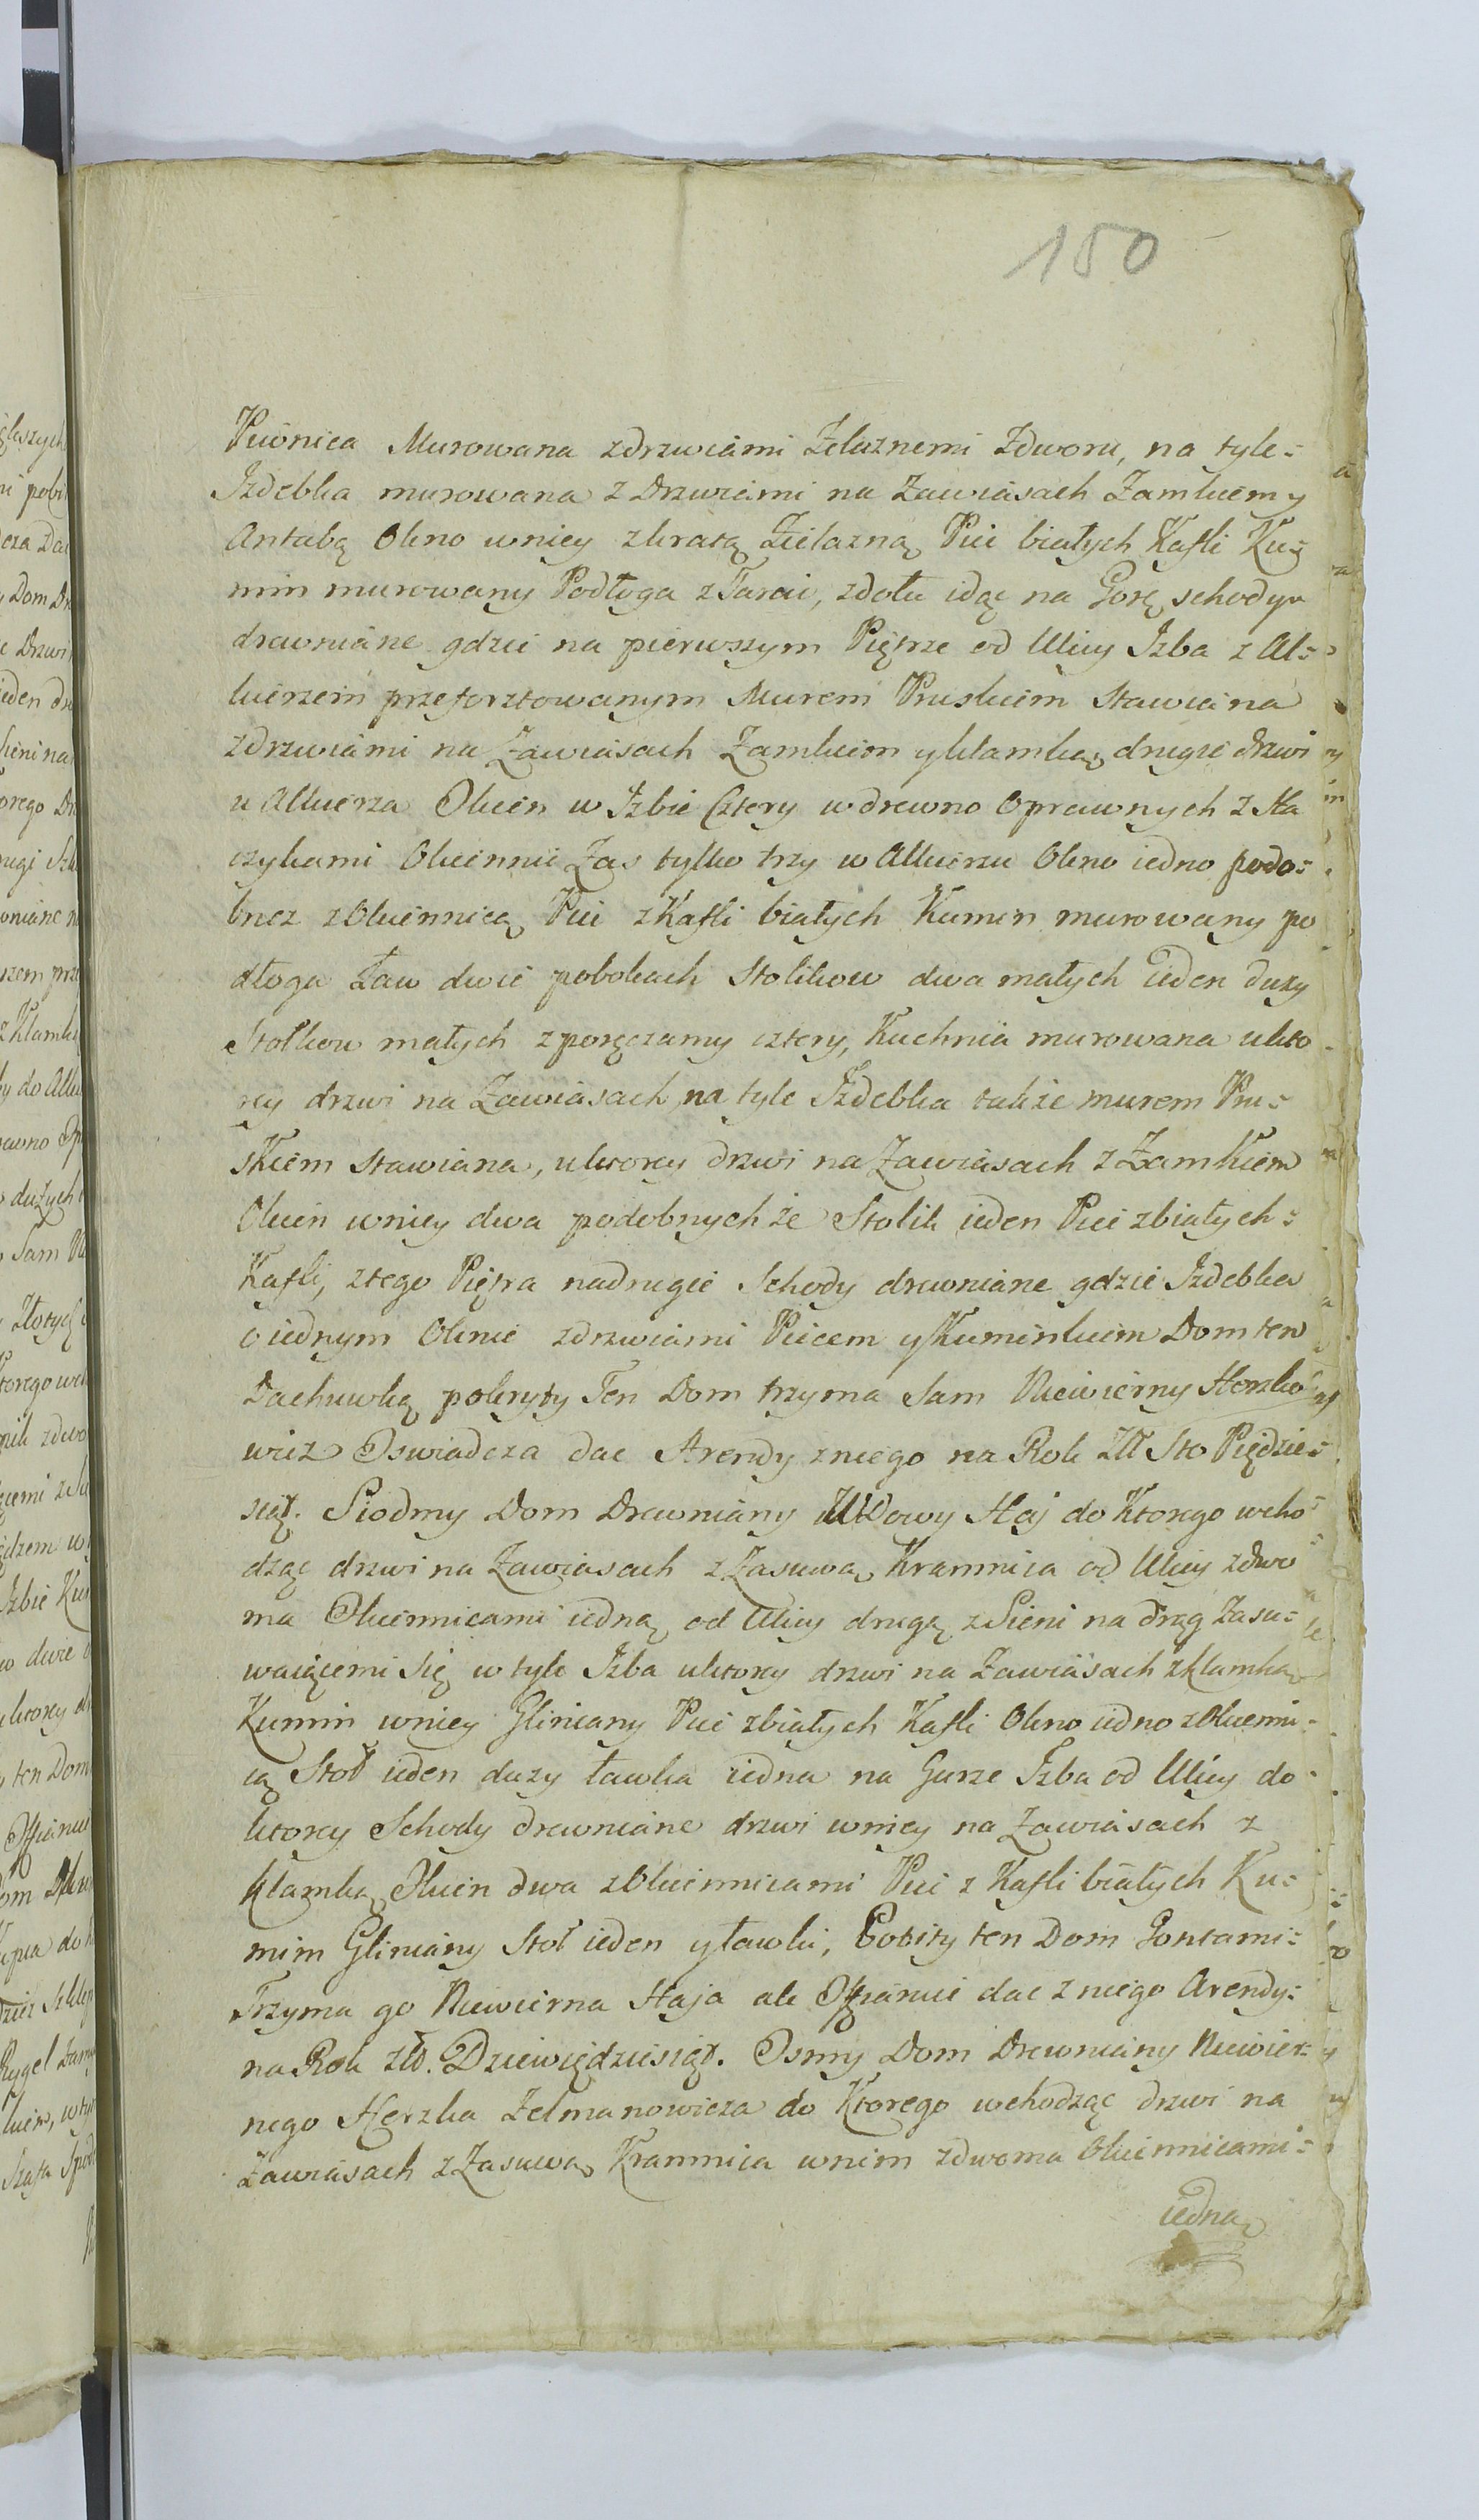 150
Piwnica Murowana zdrzwiami Żelaznemi Zdworu, na tyle=
Izdebka murowana z Drzwiami na Zawiasach Zamkiem y
Antabą Okno wniey zkratą Żelazną Piec białych Kafli Ku=
min murowany Podłoga zTarcic, zdołu idąc na Gorę schody
drewniane gdzie na pierwszym Piętrze od Ulicy Izba z Al=
kierzem przeforsztowanym Murem Pruskiem Stawiena
zdrzwiami na Zawiasach Zamkiem yklamką, drugie drzwi
u Alkierza Okien w Izbie Cztery w drewno Oprawnych z Ha
czykami Okiennic Zas tylko trzy w Alkierzu Okno iedno podo=
bnez zOkiennicą Piec zKafli białych Kumin murowany po
dłoga Ław dwie pobokach Stolikow dwa małych ieden duzy
Stołkow małych zporęczamy cztery, Kuchnia murowana ukto
rey drzwi na Zawiasach, na tyle Izdebka takze murem Pru=
skiem Stawiana, uktorey drzwi na Zawiasach z Zamkiem
Okien wniey dwa podobnych że Stolik ieden Piec zbiałych=
Kafli, ztego Piętra nadrugie Schody drewniane gdzie Izdebka
o iednym Oknie zdrzwiami Piecem yKuminkiem Dom ten
Dachuwką pokryty Ten Dom trzyma Sam Niewierny Herszko
wicz Oswiadcza dac Arendy zniego na Rok Zł Sto Pięćdzie=
siąt. Siodmy Dom Drewniany Wdowy Haj do Ktorego wcho=
dząc drzwi na Zawiasach z Zasuwą, Kramnica od Ulicy zdwo
ma Okiennicami iedną od Ulicy drugą zSieni na drąg Zasu=
waiącemi Się w tyle Izba uktorey drzwi na Zawiasach zklamką
Kumin wniey Gliniany Piec zbiałych Kafli Okno iedno zOkienni=
cą Stoł ieden duzy ławka iedna na Gurze Izba od Ulicy do
ktorey Schody drewniane drzwi wniey na Zawiasach z
klamką, Okien dwa zOkiennicami Piec z Kafli białych Ku=
mim Gliniany Stoł ieden yławki, Pobity ten Dom Gontami=
Trzyma go Niewierna Haja ale Ofiaruie dac z niego Arendy=
na Rok zło. Dziewięćdziesiąt. Osmy Dom Drewniany Niewier=
nego Herszka Zelmanowicza do Ktorego wchodząc drzwi na
Zawiasach z Zasuwą, Kramnica wnim zdwoma Okiennicami=
iedną